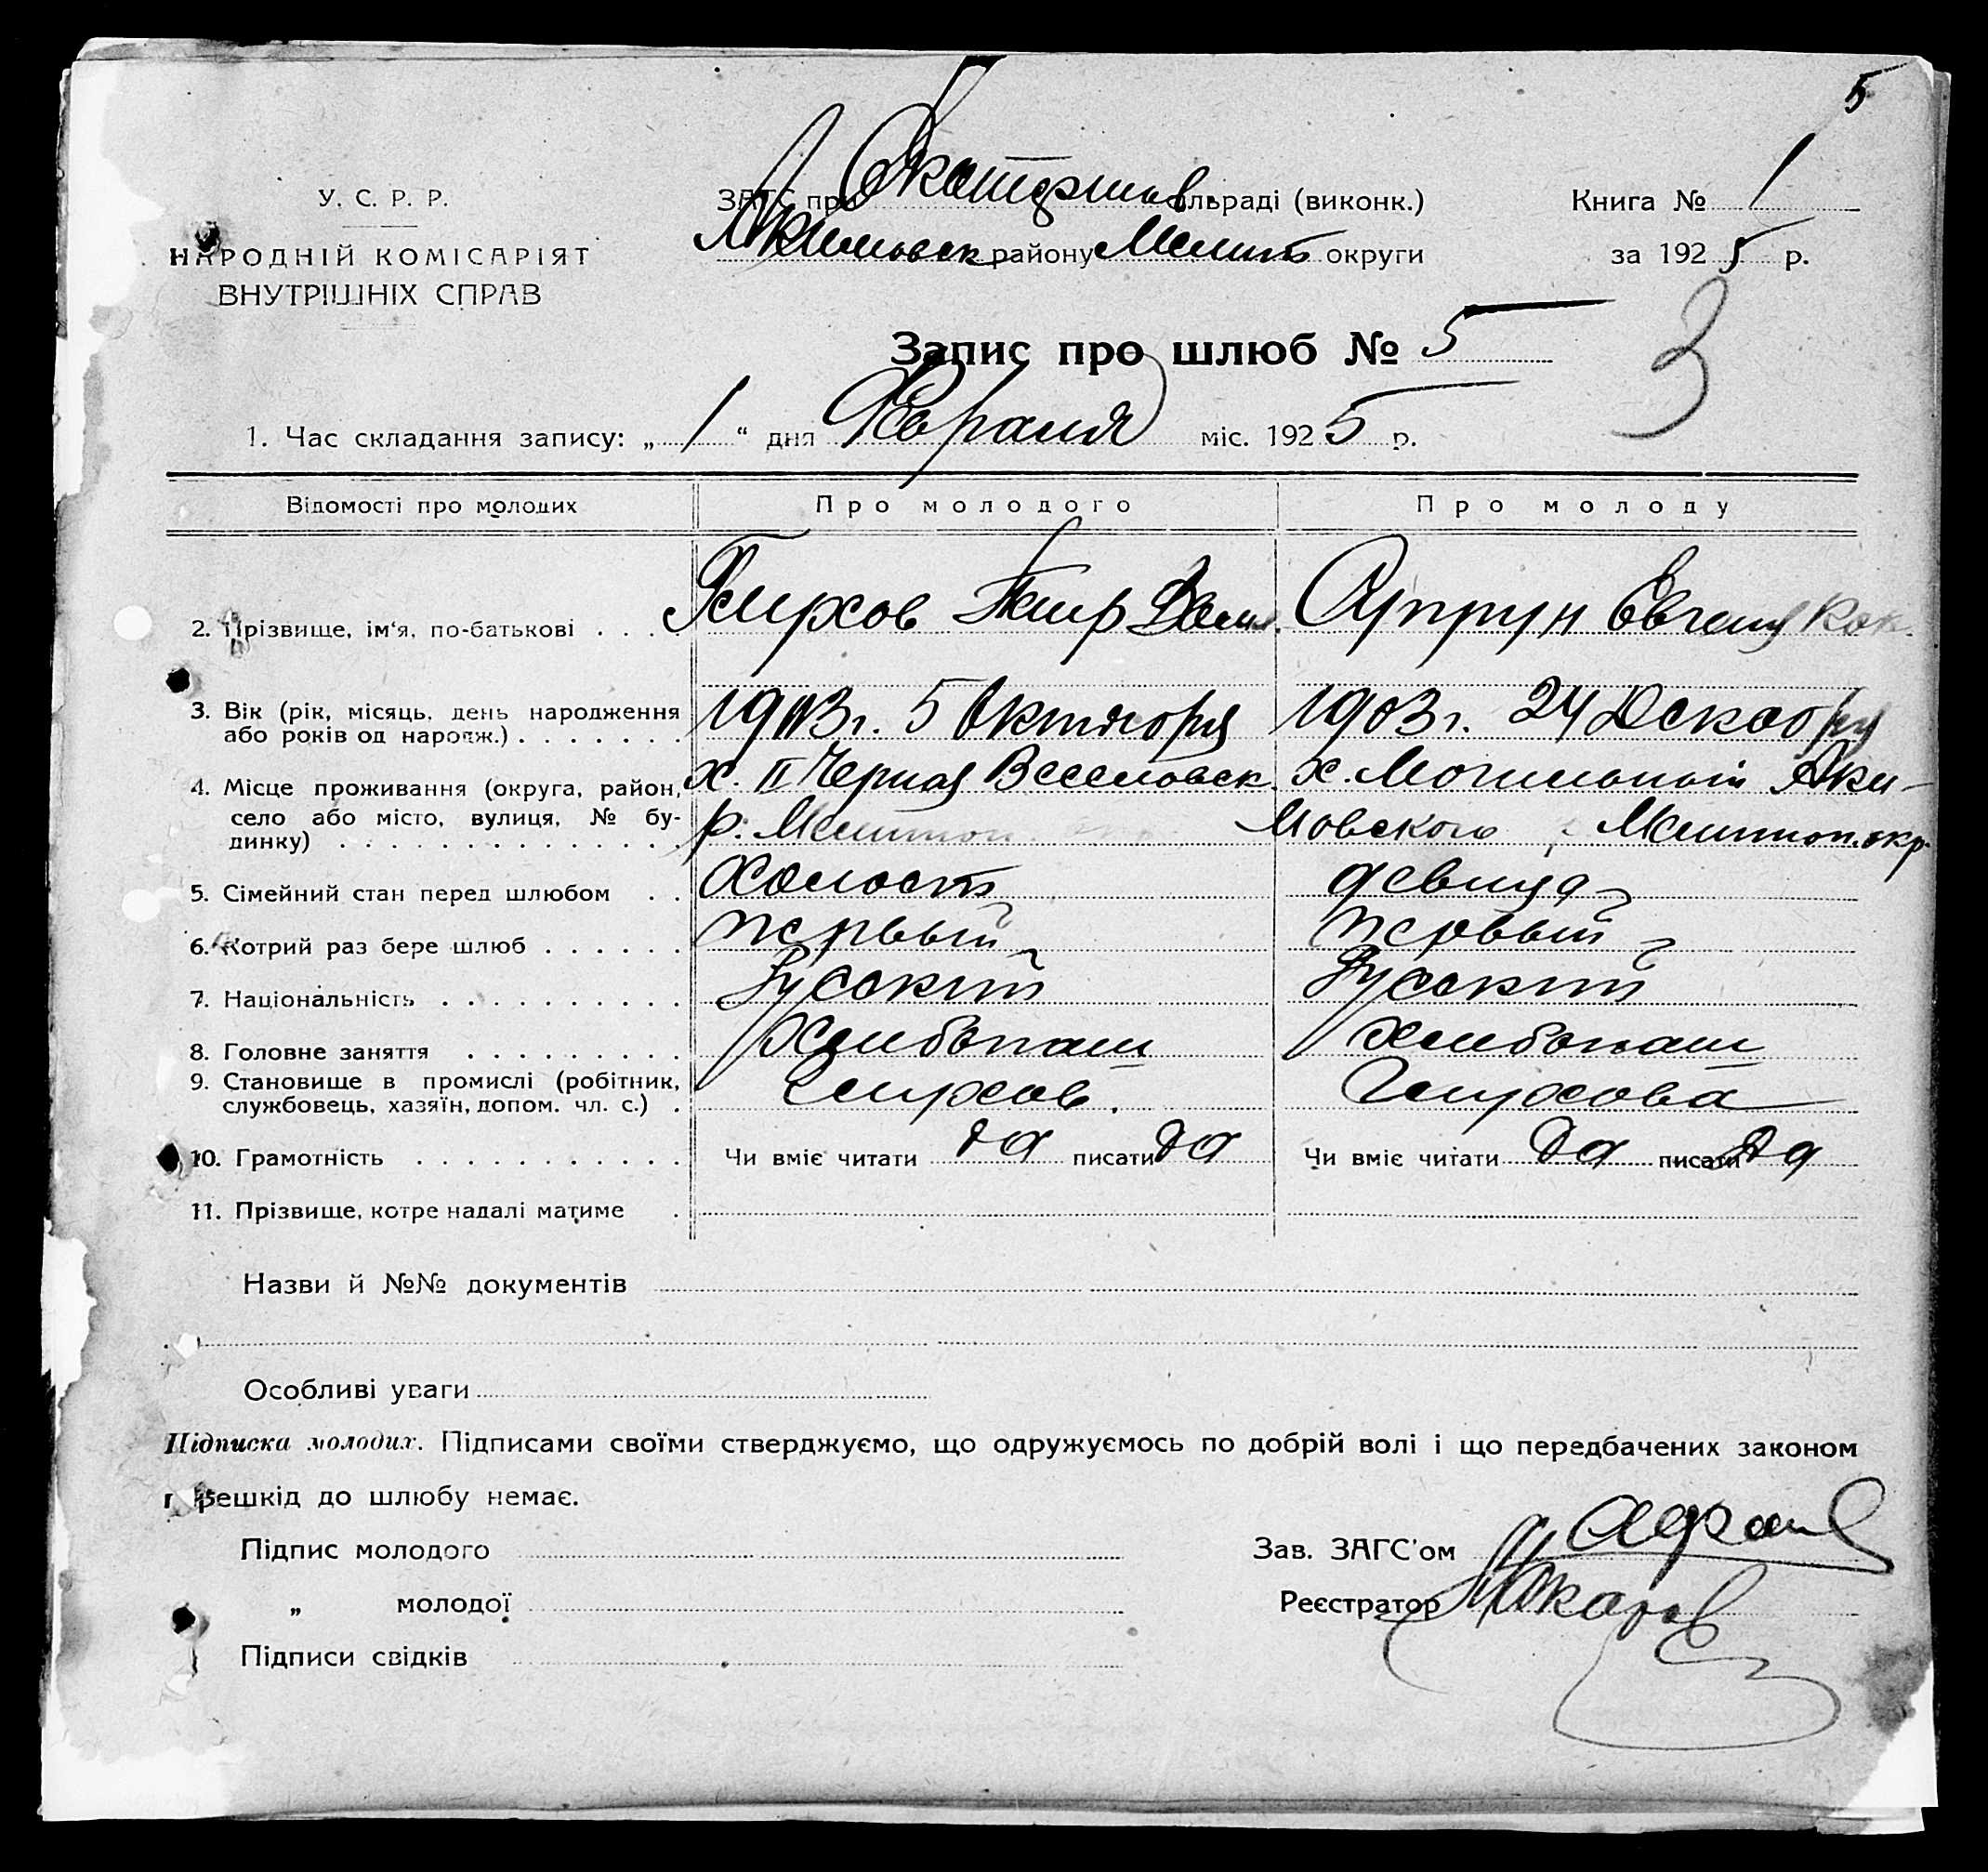 5
У. С. Р. Р.
НАРОДНІЙ КОМІСАРІЯТ
ВНУТРІШНІХ СПРАВ
ЗАГС при сільраді (виконк.)
Акимовск району Мелит округи
Книга № 1
за 1925 р.
Запис про шлюб № 5
3
1. Час складання запису: „ 1 “ дня Февраля міс. 1925 р.
Відомості про молодих Про молодого Про молоду
2. Прізвище, ім'я, по-батькові . . . . Супрун Евгения
3. Вік (рік, місяць, день народження
або років од народж.) . . . . . . . 1903 г. 5 Октября 1903 г. 24 Декабря
4. Місце проживання (округа, район,
село або місто, вулиця, № бу-
динку) . . . . . . . . . . . . . . .
х. II Черная Веселовск. р. х. Могильный Аки-
мовского Мелитоп. окр.
5. Сімейний стан перед шлюбом . . Холост девица
6. Котрий раз бере шлюб . . . . . . первый первый
7. Національність . . . . . . . . . . Русский Русский
8. Головне заняття . . . . . . . . . Хлибопаш хлибопаш
9. Становище в промислі (робітник,
службовець, хазяїн, допом. чл. с.) .
10. Грамотність . . . . . . . . . . . Чи вміє читати да писати да Чи вміє читати да писати да
11. Прізвище, котре надалі матиме .
Назви й №№ документів
Особливі уваги
Підписка молодих. Підписами своїми стверджуємо, що одружуємось по добрій волі і що передбачених законом
перешкід до шлюбу немає.
Підпис молодого
„ молодої
Підписи свідків
Зав. ЗАГС'ом
Реєстратор